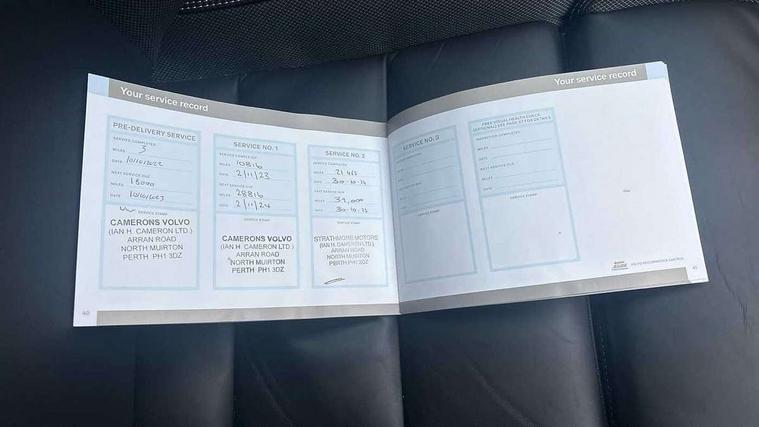 Your service record
PRE-DELIVERY SERVICE
SERVICE COMPLETED
MILES 3
DATE 10/10/2022
NEXT SERVICE DUE
MILES 18000
DATE 10/10/2023
SERVICE STAMP
CAMERONS VOLVO
(IAN H. CAMERON LTD.)
ARRAN ROAD
NORTH MUIRTON
PERTH PH1 3DZ
SERVICE NO. 1
SERVICE COMPLETED
MILES 10816
DATE 2/11/23
NEXT SERVICE DUE
MILES 28816
DATE 2/11/24
SERVICE STAMP
CAMERONS VOLVO
(IAN H. CAMERON LTD.)
ARRAN ROAD
NORTH MUIRTON
PERTH PH1 3DZ
SERVICE NO. 2
SERVICE COMPLETED
MILES
DATE
NEXT SERVICE DUE
MILES
DATE
SERVICE STAMP
STRATHMORE MOTORS
(IAN H. CAMERON LTD.)
ARRAN ROAD
NORTH MUIRTON
PERTH PH1 3DZ
40
Your service record
SERVICE NO. 3
SERVICE STAMP
FREE VISUAL HEALTH CHECK
(OPTIONAL) SEE PAGE 37 FOR DETAILS
MILES
DATE
NEXT SERVICE DUE
MILES
DATE
SERVICE STAMP
41